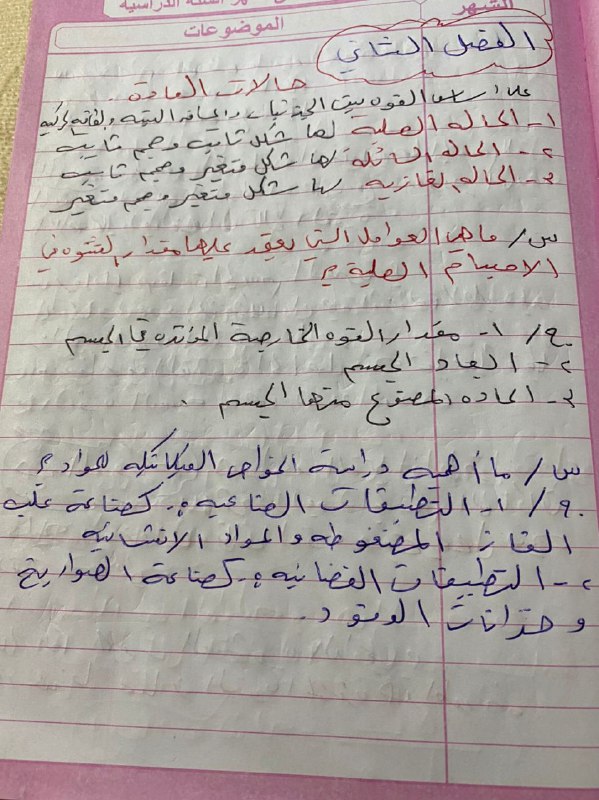 الشهر
الموضوعات
الفصل الثاني
حالات المادة
على اساس القوه بين الجزيئات والمسافه البينية والطاقه الحركيه
١- الحاله الصلبة لها شكل ثابت وحجم ثابت
٢- الحاله السائلة لها شكل متغير وحجم ثابت
٣- الحاله الغازية لها شكل متغير وحجم متغير
س/ ماهي العوامل التي يعتمد عليها مقدار التشوه في
الاجسام الصلبة ؟
ج/ ١- مقدار القوه الخارجية المؤثره في الجسم
٢- ابعاد الجسم
٣- الماده المصنوع منها الجسم .
س/ ما أهمية دراسة الخواص الميكانيكيه للمواد ؟
ج/ ١- التطبيقات الصناعيه :- كصناعة علب
الغاز المضغوطه والمواد الانشائيه
٢- التطبيقات الفضائيه :- كصناعة الصواريخ
وخزانات الوقود .